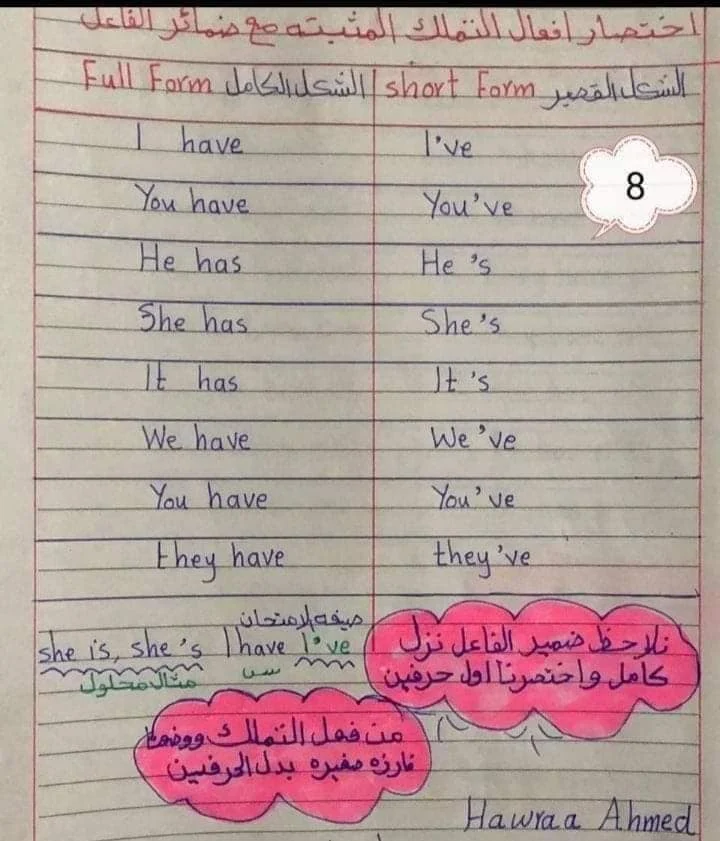 اختصار افعال التملك المثبته مع ضمائر الفاعل
Full Form الشكل الكامل | short Form الشكل القصير
I have I've
8
You have You've
He has He 's
She has She's
It has It 's
We have We 've
You have You've
they have they've
صيغه الامتحان
she is, she's I have I've
مثال محلول
س
نلاحظ ضمير الفاعل نزل
كامل واختصرنا اول حرفين
من فعل التملك ووضعنا
فارزه صغيره بدل الحرفين
Hawraa Ahmed